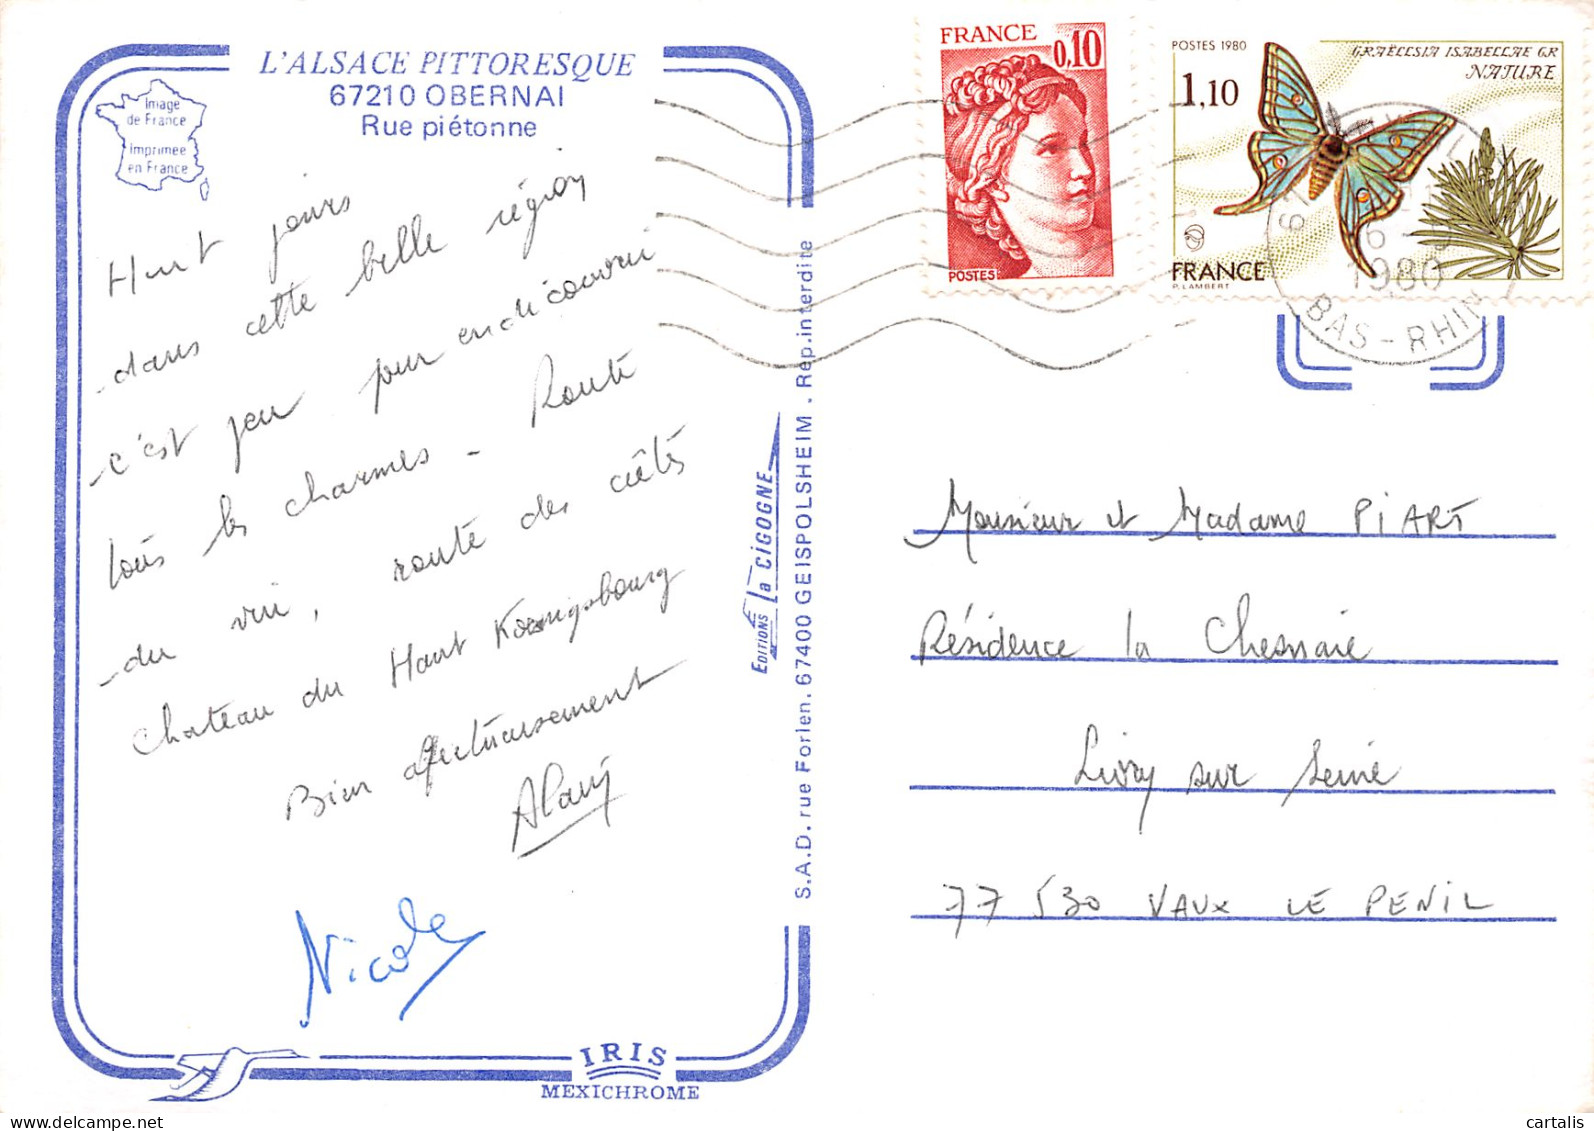 L'ALSACE PITTORESQUE
67210 OBERNAI
Rue piétonne
Image
de France
Imprimée
en France
Huit jours
dans cette belle région
c'est peu pour en découvrir
tous les charmes - Route
du vin, route des crêtes
Chateau du Haut Koenigsbourg
Bien affectueusement
Alain
Nicole
IRIS
MEXICHROME
EDITIONS La CIGOGNE
S.A.D. rue Forlen. 67400 GEISPOLSHEIM . Rep. interdite
FRANCE
0,10
POSTES
POSTES 1980
GRAËLLSIA ISABELLAE GR
NATURE
1,10
FRANCE
P. LAMBERT
1980
BAS-RHIN
Monsieur et Madame PIART
Résidence la Chesnaie
Livry sur Seine
77 530 VAUX LE PENIL
cartalis